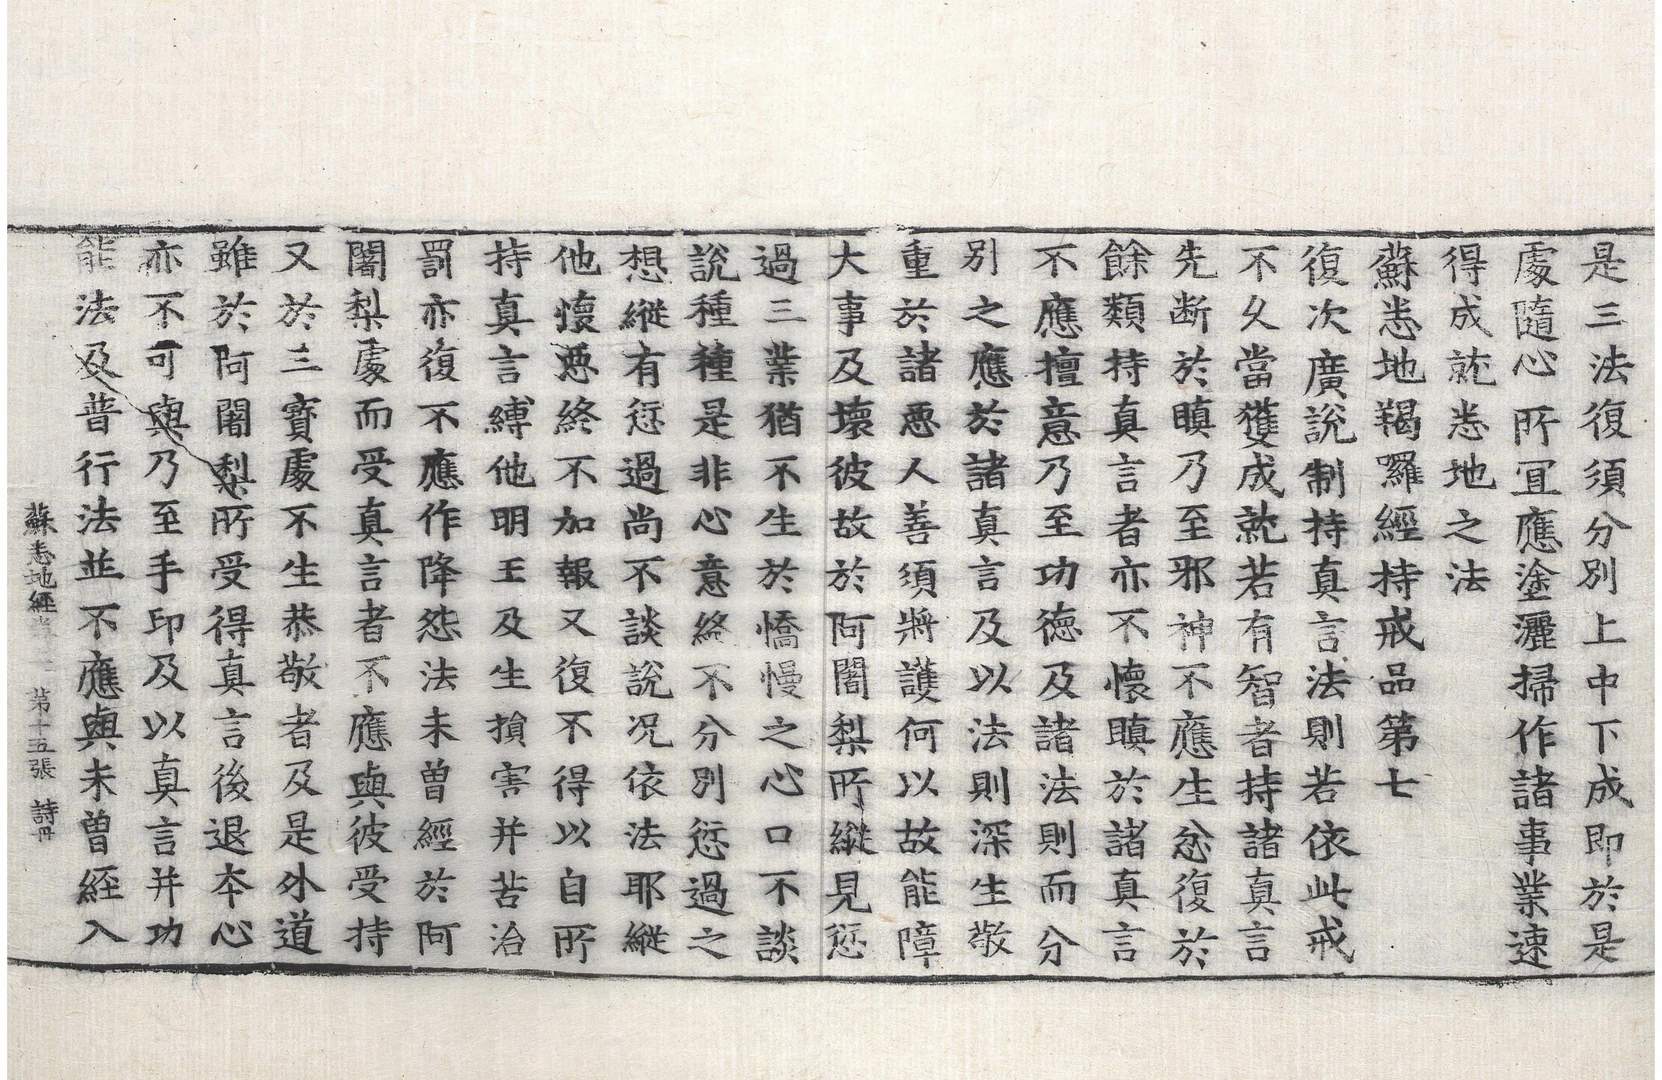 是三法復須分別上中下成即於是
處隨心所冝應塗灑掃作諸事業速
得成就悉地之法
蘇悉地羯囉經持戒品第七
復次廣說制持真言法則若依此戒
不久當獲成就若有智者持諸真言
先断於瞋乃至邪神不應生忿復於
餘類持真言者亦不懷瞋於諸真言
不應擅意乃至功德及諸法則而分
別之應於諸真言及以法則深生敬
重於諸惡人善須將護何以故能障
大事及壞彼故於阿闍梨所縱見愆
過三業猶不生於憍慢之心口不談
說種種是非心意終不分別愆過之
想縱有愆過尚不談說况依法耶縱
他懷惡終不加報又復不得以自所
持真言縛他明王及生損害并苦治
罰亦復不應作降怨法未曾經於阿
闍梨處而受真言者不應與彼受持
又於三寳處不生恭敬者及是外道
雖於阿闍梨所受得真言後退夲心
亦不可與乃至手印及以真言并功
能法及普行法並不應與未曾經入
蘇悉地經 第十五張 詩冊